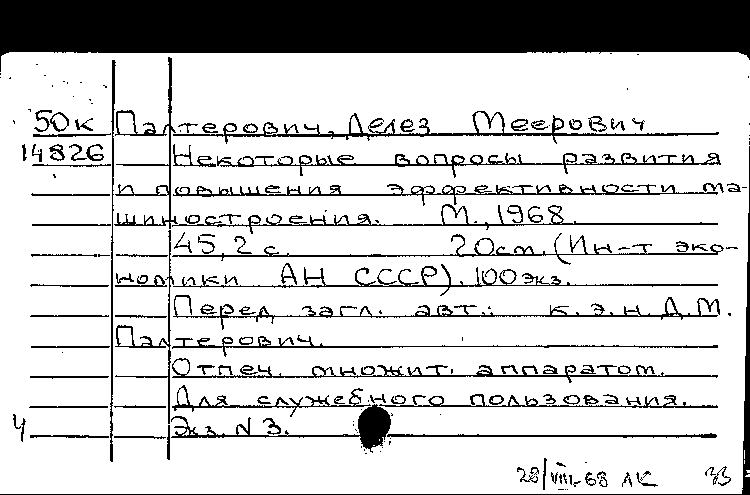 50к Палтерович, Делез Меерович
14826 Некоторые вопросы развития
и повышения эффективности ма-
шиностроения. М., 1968.
45,2 с. 20 см. (Ин-т эко-
номики АН СССР). 100 экз.
Перед загл. авт.: к.э.н. Д.М.
Палтерович.
Отпеч. множит. аппаратом.
Для служебного пользования.
Ч Экз. N 3.
28/VIII-68 АК 33